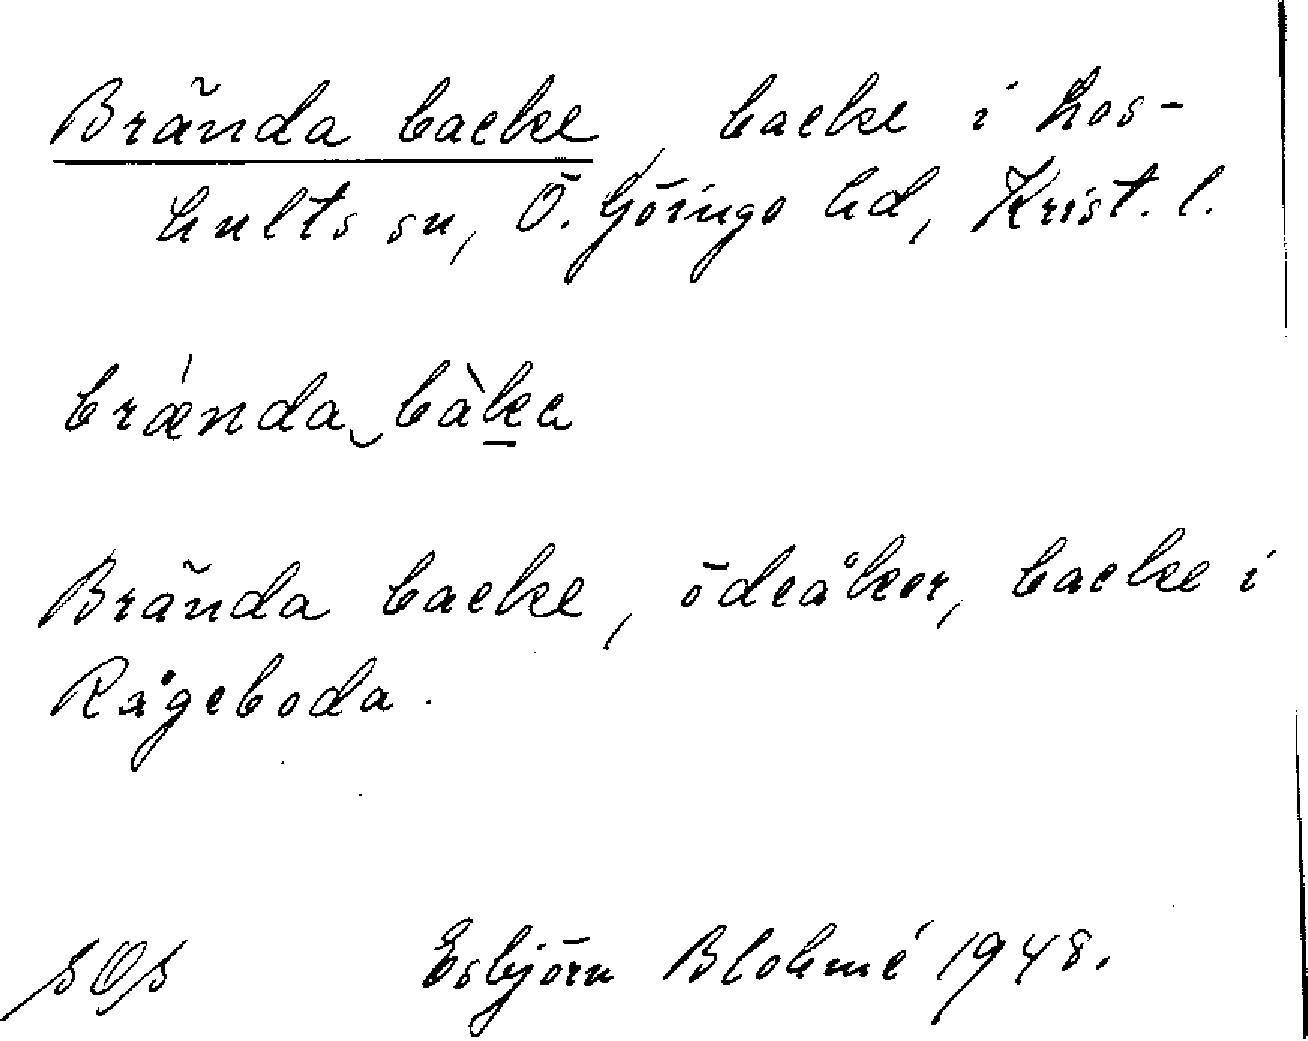 Brända backe, backe i Los-
hults sn, Ö. Göinge hd, Krist. l.
brǽnda‿bàka
Brända backe, ödeåker, backe i
Rågeboda.
Esbjörn Blohmé 1948.